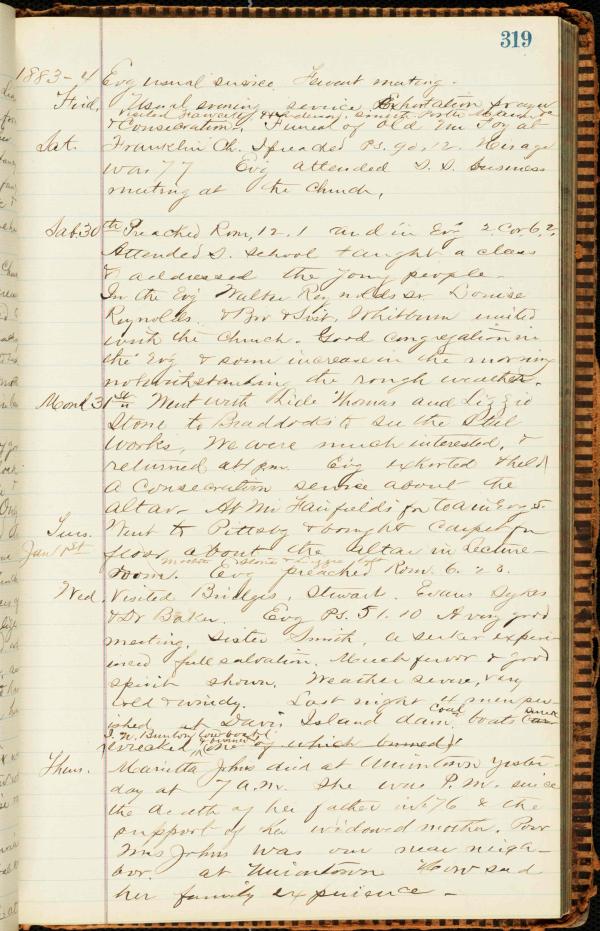 319
1883-4 Evg usual service. Fervent meeting.
Frid. Usual evening service. Exhortation, prayer
visited
& Consecration. Funeral of Old Mr Foy at
Sat. Franklin Ch. I preached Ps. 90, 12. His age
was 77 Evg attended S. S. business
meeting at the Church.
Sab. 30th Preached Rom, 12. 1 and in Evg 2 Cor 6, 2,
Attended S. School taught a class
& addressed the young people.
In the Evg Walter Reynolds sr. Louise
Reynolds. & Bro & Sist. Whitburn united
with the Church. Good congregation in
the Evg & some increase in the morning
notwithstanding the rough weather.
Mond 31st Went with Lide Thomas and Lizzie
Stone to Braddocks to see the Steel
Works. We were much interested, &
returned at 4 pm. Evg exhorted & held
a Consecration service about the
altar. At Mr Fairfields for tea in Evg.
Tues. Went to Pittsbg & bought Carpet for
Jan 1st floor about the altar in Lecture-
Mother E Stone & Lizzie left
room. Evg preached Rom. 6. 23.
Wed. Visited Bridges, Stewart. Evans Sykes
& Dr Baker. Evg Ps. 51. 10 A very good
meeting. Sister Smith, a seeker experi-
enced full salvation. Much fervor & good
spirit shown. Weather severe, very
cold & windy. Last night 4 men per-
ished at Davis Island dam, Coal boats sunk
J. N. Bunton tow boat
wrecked & one of which burned.
Thurs. Marietta Johns died at Uniontown yester-
day at 7 A.M. She was P.M. since
the death of her father in '76 & the
support of her widowed mother. Poor
Mrs Johns was our near neigh-
bor. at Uniontown How sad
her family experience -